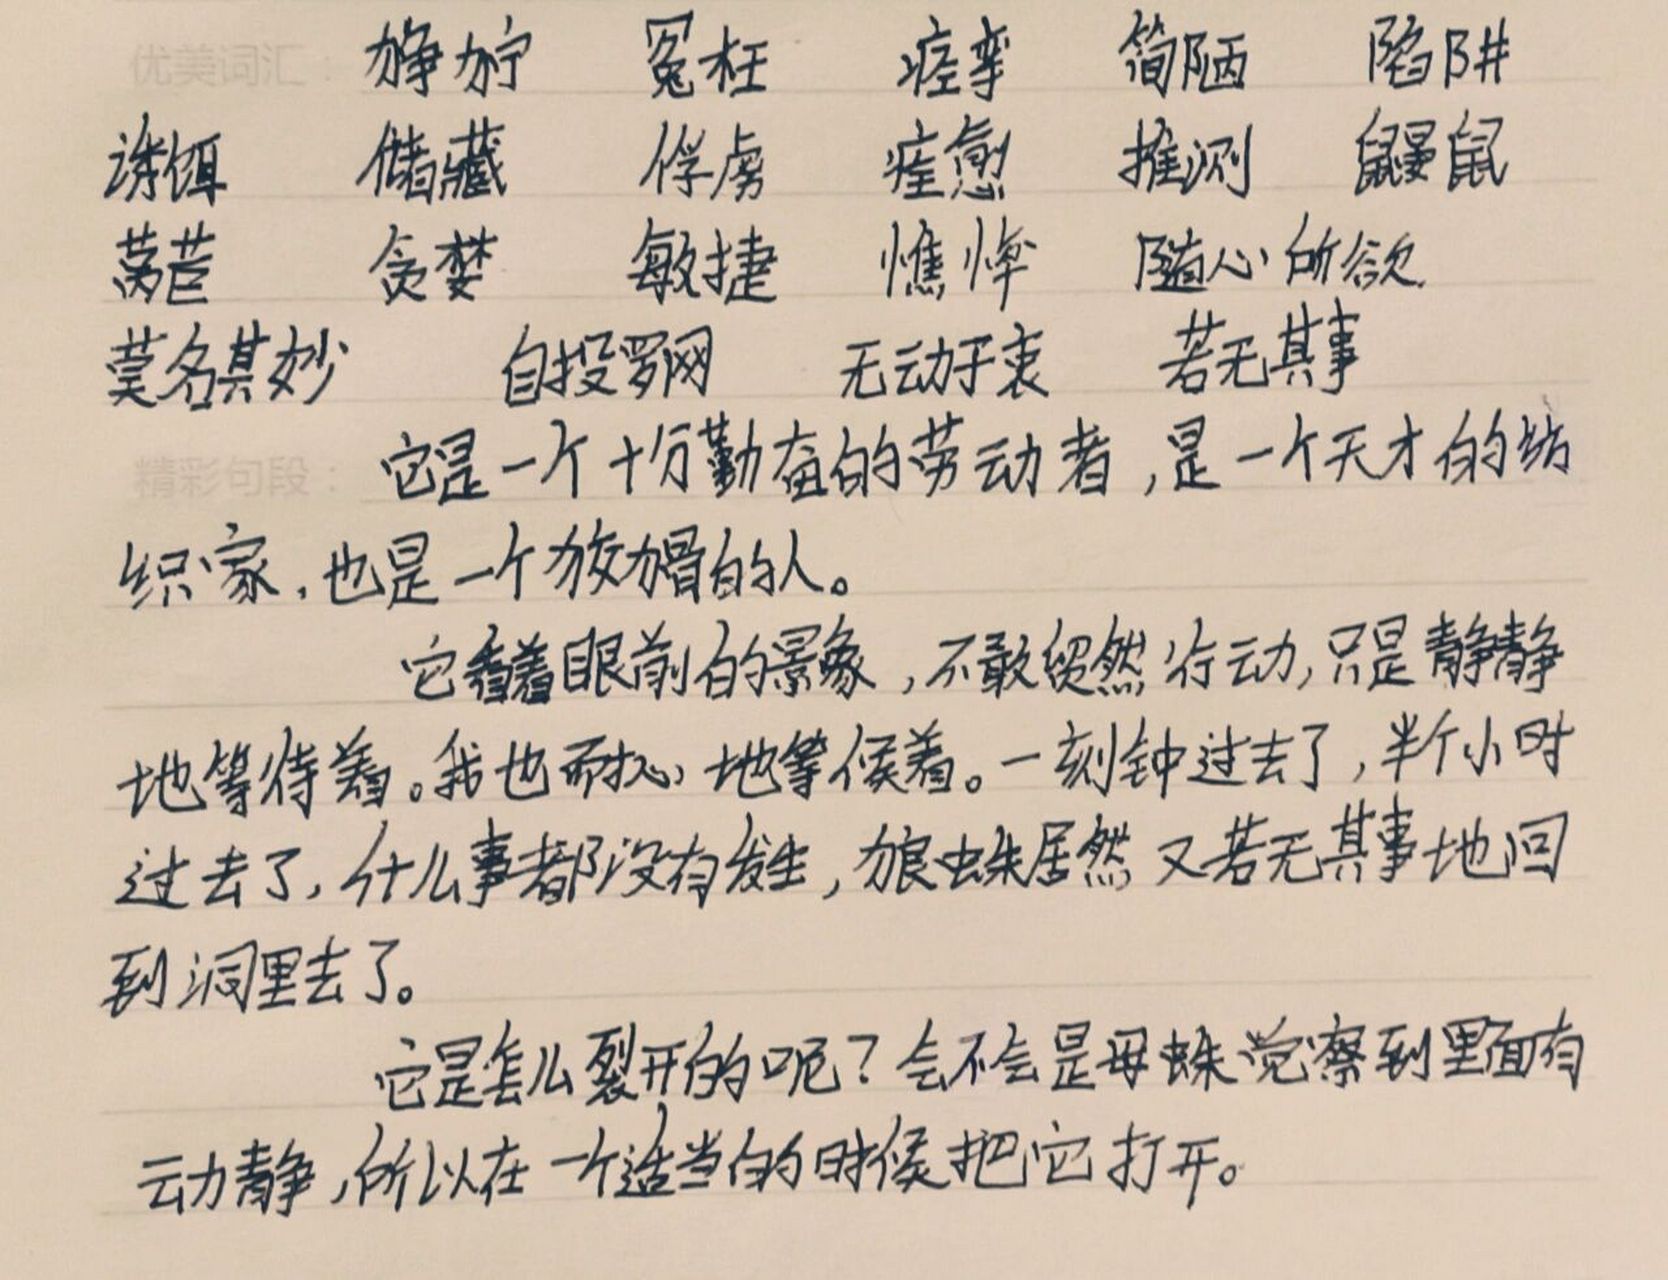 优美词汇： 狰狞 冤枉 痉挛 简陋 陷阱
诱饵 储藏 俘虏 痊愈 推测 鼹鼠
莴苣 贪婪 敏捷 憔悴 随心所欲
莫名其妙 自投罗网 无动于衷 若无其事
精彩句段： 它是一个十分勤奋的劳动者，是一个天才的纺
织家，也是一个狡猾的人。
它看着眼前的景象，不敢贸然行动，只是静静
地等待着。我也耐心地等候着。一刻钟过去了，半个小时
过去了，什么事都没有发生，狼蛛居然又若无其事地回
到洞里去了。
它是怎么裂开的呢？会不会是母蛛觉察到里面有
动静，所以在一个适当的时候把它打开。